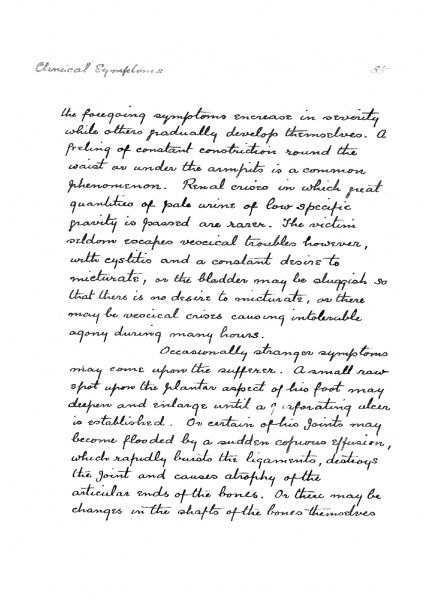 Clinical Symptoms 35
the foregoing symptoms increase in severity
while others gradually develop themselves. A
feeling of constant constriction round the
waist or under the armpits is a common
phenomenon. Renal crises in which great
quantities of pale urine of low specific
gravity is passed are rarer. The victim
seldom escapes vesical troubles however,
with cystitis and a constant desire to
micturate, or the bladder may be sluggish so
that there is no desire to micturate, or there
may be vesical crises causing intolerable
agony during many hours.
Occasionally stranger symptoms
may come upon the sufferer. A small raw
spot upon the plantar aspect of his foot may
deepen and enlarge until a perforating ulcer
is established. Or certain of his joints may
become flooded by a sudden copious effusion,
which rapidly bursts the ligaments, destroys
the joint and causes atrophy of the
articular ends of the bones. Or there may be
changes in the shafts of the bones themselves